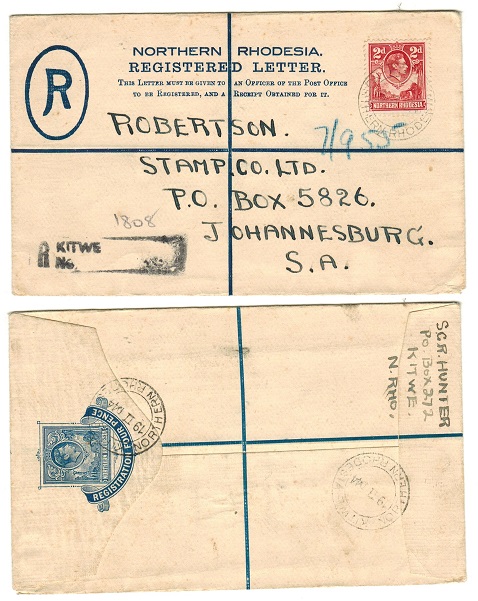 R
NORTHERN RHODESIA.
REGISTERED LETTER.
THIS LETTER MUST BE GIVEN TO AN OFFICER OF THE POST OFFICE
TO BE REGISTERED, AND A RECEIPT OBTAINED FOR IT.
2d 2d
NORTHERN RHODESIA
ROBERTSON.
STAMP. CO. LTD.
P.O. BOX 5826.
JOHANNESBURG.
S.A.
1808
R KITWE
No.
S.G.R. HUNTER
P.O. BOX 272
KITWE.
N. RHO.
REGISTRATION FOUR PENCE